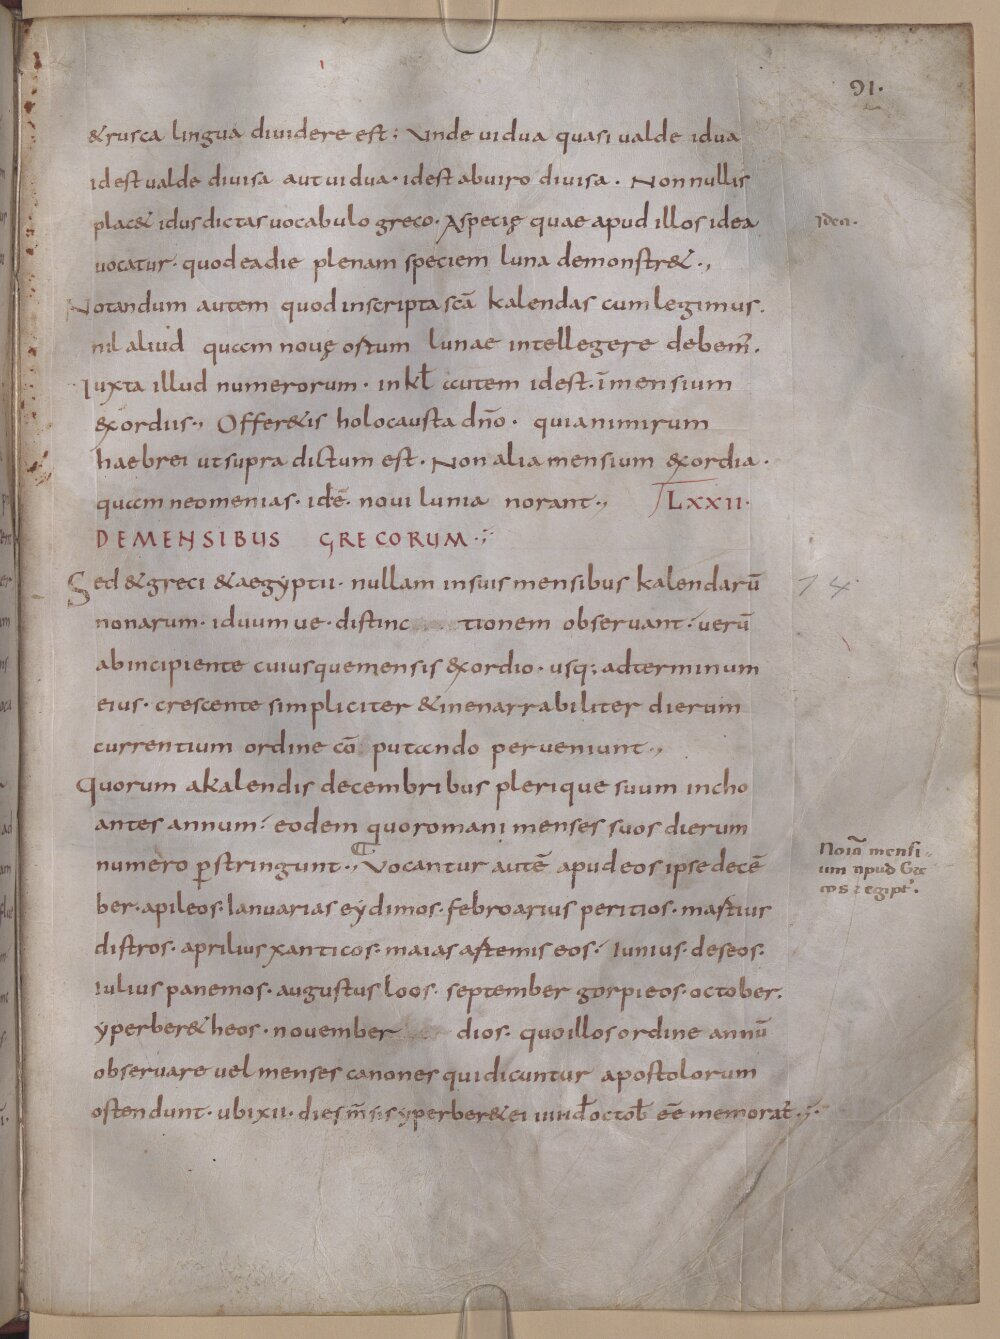 91.
&rusca lingua diuidere est; Vnde uidua quasi ualde idua
idest ualde diuisa aut uidua · idest abuiro diuisa . Non nullis
plac& idus dictas uocabulo greco · Aspecię quae apud illos idea
idea.
uocatur · quod eadie plenam speciem luna demonstr& .,
Notandum autem quod inscripta scā kalendas cum legimus.
nil aliud quam nouę ostum lunae intellegere debem̄.
Iuxta illud numerorum · in kł autem idest · īmensium
exordiis ., Offer&is holocausta dn̄o · quia nimirum
haebrei ut supra dictum est · Non alia mensium exordia .
quam neomenias · idē · noui lunia norant ., LXXII.
DEMENSIBUS GRECORUM .;
Sed & greci & aegyptii · nullam in suis mensibus kalendarū
14
nonarum · iduum ue · distinc tionem obseruant · uerū
ab incipiente cuiusque mensis exordio · usq; ad terminum
eius · crescente simpliciter & inenarrabiliter dierum
currentium ordine cō putando perueniunt .,
Quorum akalendis decembribus plerique suum incho
antes annum · eodem quo romani menses suos dierum
numero ꝑstringunt ., Vocantur autē apud eos ipse decē
Noīa mensi
um apud Gre
cos ⁊ egipt'.
ber · apileos · Ianuarias eydimos · febroarius peritios · mastius
distros · aprilius xanticos · maias astemis eos · Iunius · deseos ·
Iulius panemos · augustus loos · september gorpieos · october ·
yperber& heos · nouember dios · quo illos ordine annū
obseruare uel menses canones qui dicuntur apostolorum
ostendunt · ubi xii · dies m̄sis yperber&ei iiii id octob eē memorat .;